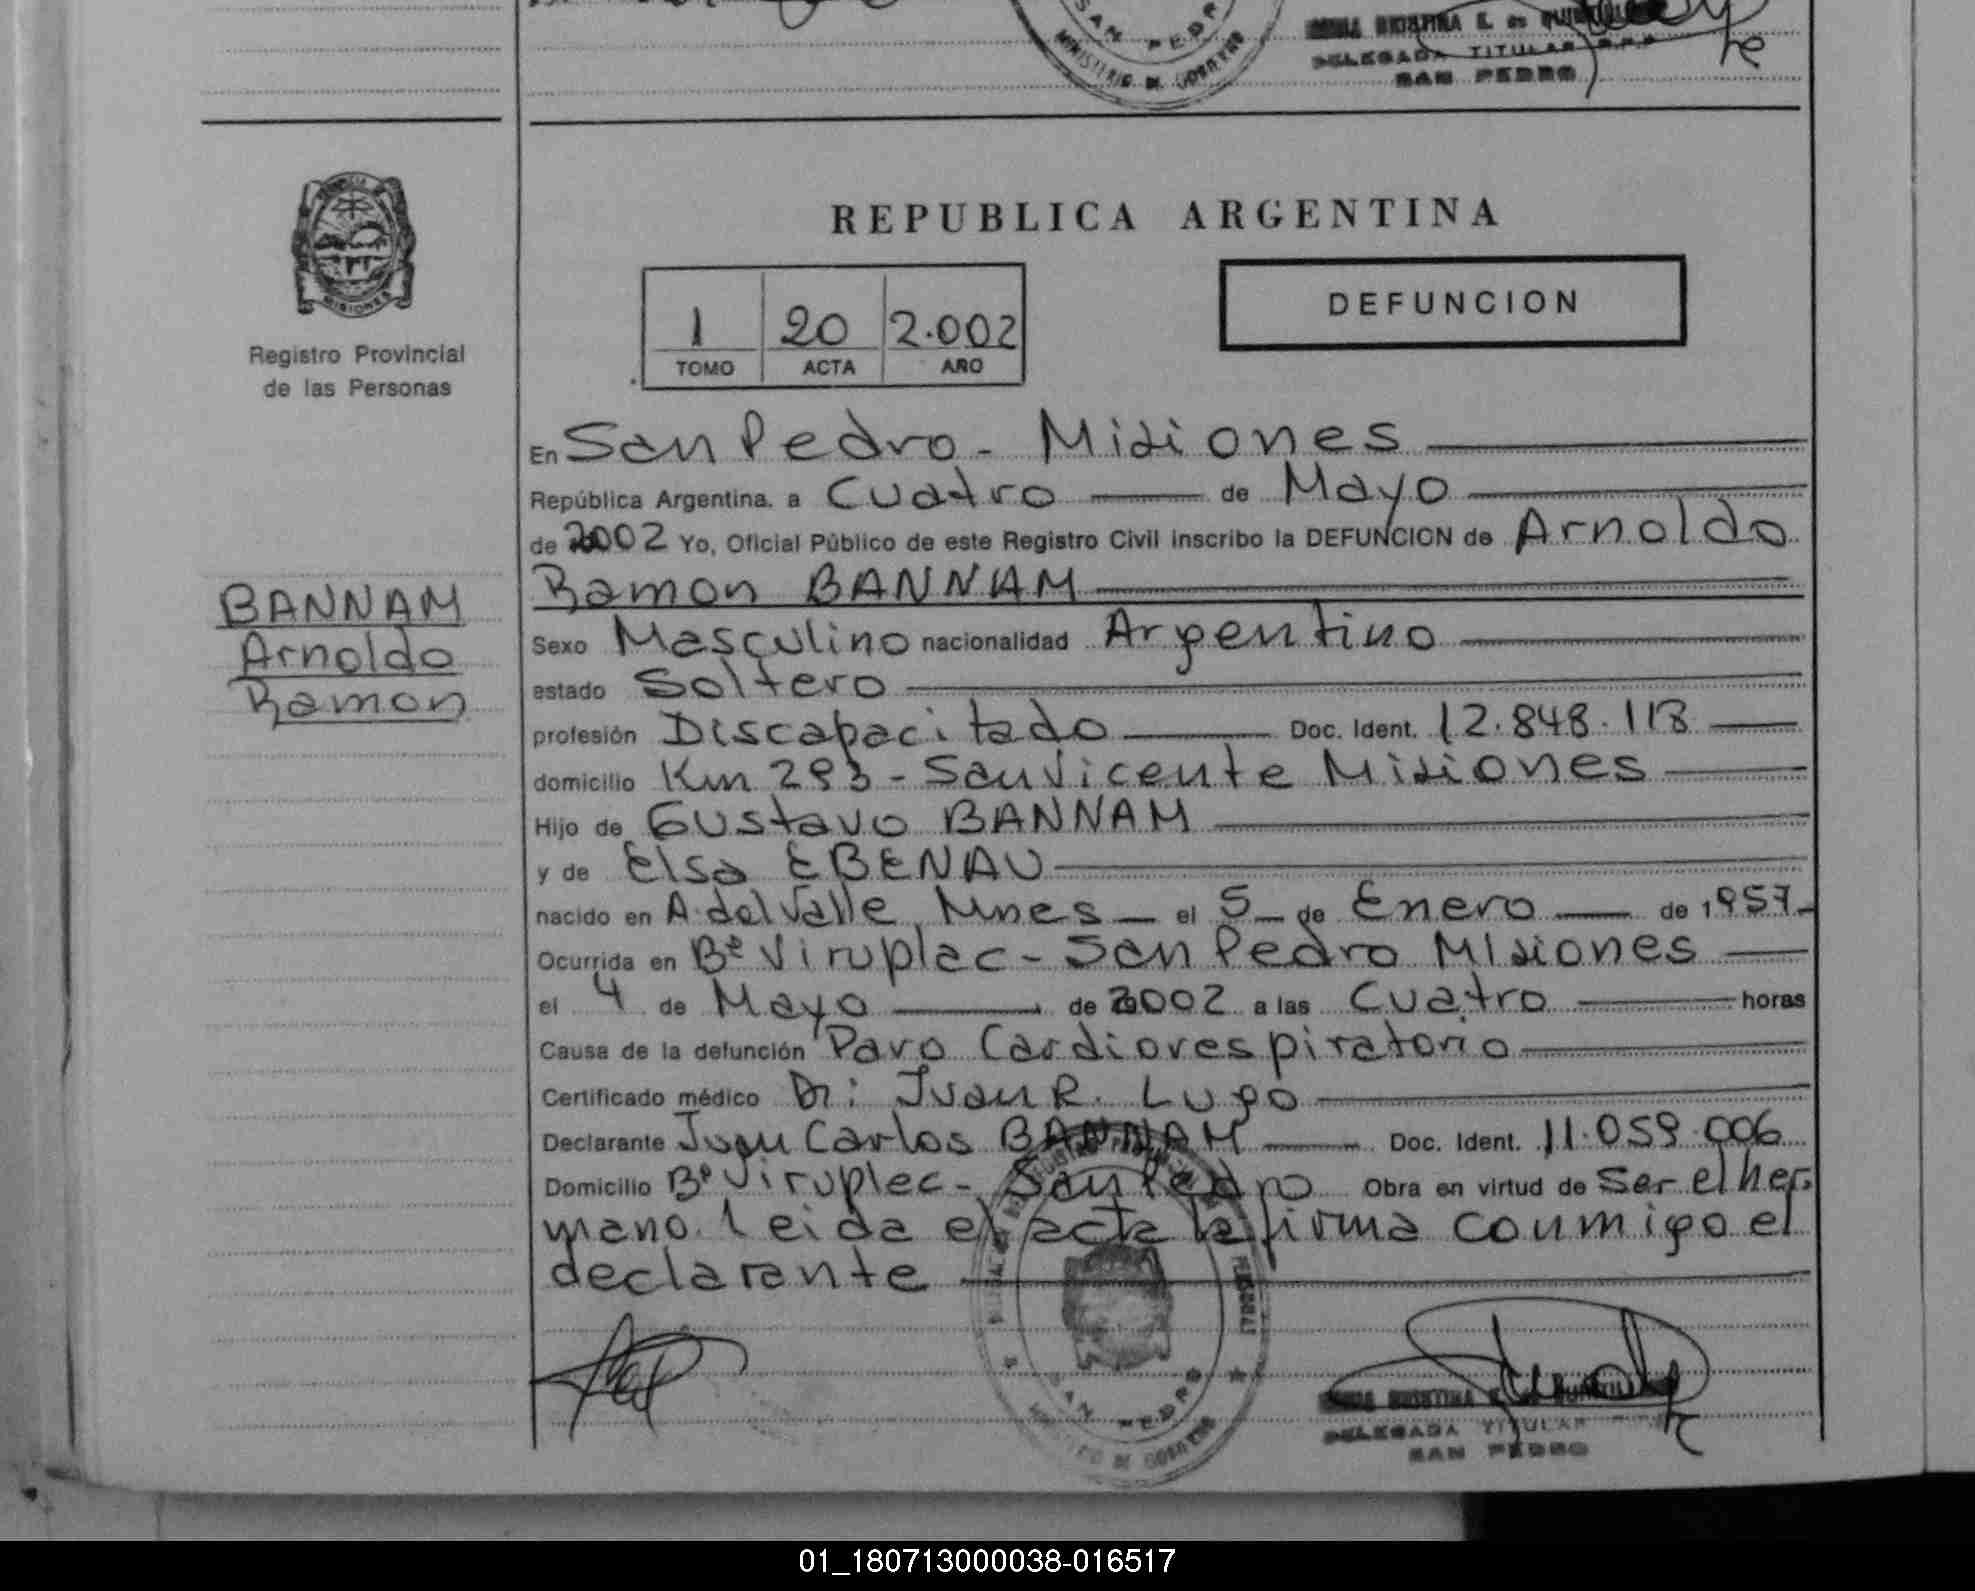 SAN PEDRO
MINISTERIO DE GOBIERNO
DELEGADA TITULAR
SAN PEDRO
PROVINCIA DE
MISIONES
Registro Provincial
de las Personas
REPUBLICA ARGENTINA
1 20 2.002
TOMO ACTA AÑO
DEFUNCION
En San Pedro - Misiones
República Argentina. a Cuatro de Mayo
de 2002 Yo, Oficial Público de este Registro Civil inscribo la DEFUNCION de Arnoldo
Ramon BANNAM
BANNAM
Arnoldo
Ramon
Sexo Masculino nacionalidad Argentino
estado Soltero
profesión Discapacitado Doc. Ident. 12.848.118
domicilio Km 293 - San Vicente Misiones
Hijo de Gustavo BANNAM
y de Elsa EBENAU
nacido en A. del Valle Mnes el 5 de Enero de 1957
Ocurrida en Bº Viruplac - San Pedro Misiones
el 4 de Mayo de 2002 a las Cuatro horas
Causa de la defunción Paro Cardiorespiratorio
Certificado médico Dr: Juan R. Lugo
Declarante Juan Carlos BANNAM Doc. Ident. 11.059.006
Domicilio Bº Viruplec - San Pedro Obra en virtud de Ser el her
mano. leida el acta la firma conmigo el
declarante
SAN PEDRO
MINISTERIO DE GOBIERNO
DELEGADA TITULAR
SAN PEDRO
01_180713000038-016517